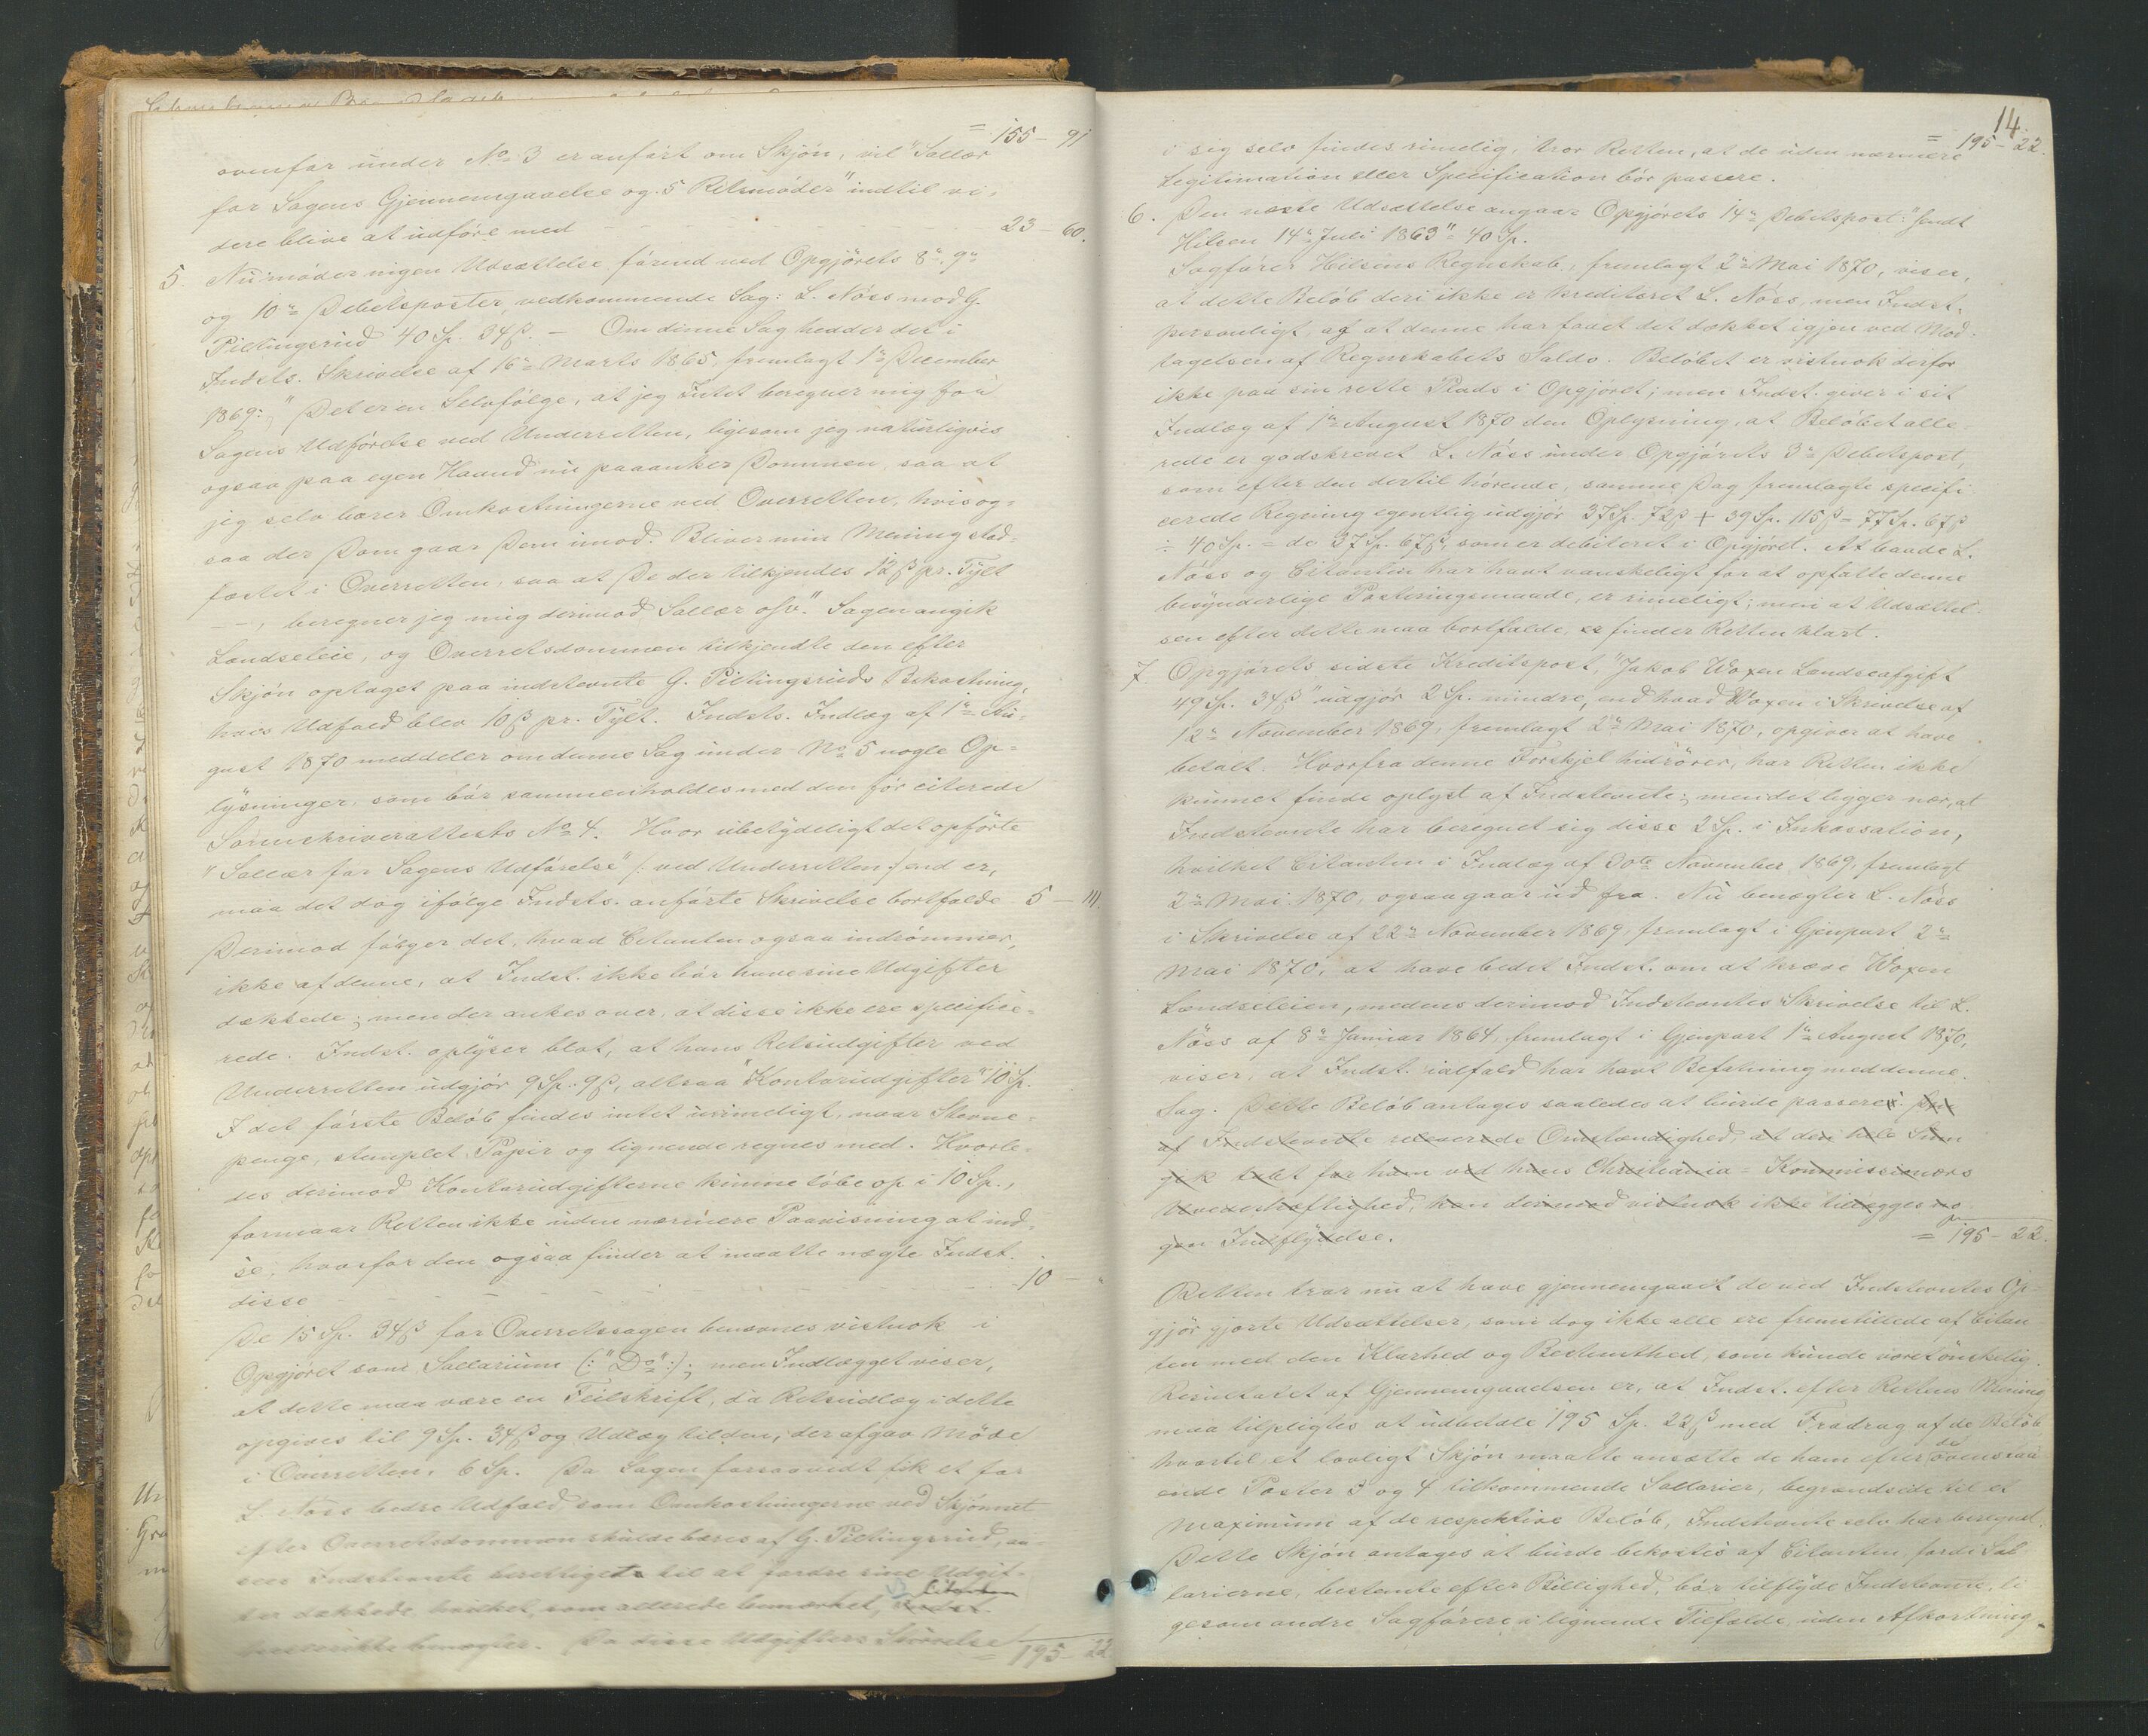 = 155 – 91
ovenfor under No 3 er anført om Skjön, vil "Sallær
for Sagens Gjennemgaaelse og 5 Retsmöder" indtil vi-
dere blive at udföre med – – – 23 – 60.
5. Nu möder ingen Udsættelse förend ved Opgjörets 8de, 9de
og 10de Debetsposter, vedkommende Sag: L. Nöss mod G.
Piltingsrud 40 Sp. 34 ß. – Om denne Sag hedder det i
Indsts. Skrivelse af 16de Marts 1865, fremlagt 1ste December
1869: "Det er en Selvfölge, at jeg Intet beregner mig for
Sagens Udförelse ved Underretten, ligesom jeg naturligvis
ogsaa paa egen Haand nu paaanker Dommen, saa at
jeg selv bærer Omkostningerne ved Overretten, hvis og-
saa der Dom gaar Dem imod. Bliver min Mening stad-
fæstet i Overretten, saa at De der tilkjendes 12 ß pr. Tylt
– –, beregner jeg mig derimod Sallær osv." Sagen angik
Landseleie, og Overretsdommen tilkjendte den efter
Skjön optaget paa indstevnte G. Piltingsruds Bekostning,
hvis Udfald blev 10 ß pr. Tylt. Indsts. Indlæg af 1ste Au-
gust 1870 meddeler om denne Sag under No 5 nogle Op-
lysninger, som bör sammenholdes med den för citerede
Sorenskriverattests No 4. Hvor ubetydeligt det opförte
"Sallær for Sagens Udförelse" /: ved Underretten :/ end er,
maa det dog ifölge Indsts. anförte Skrivelse bortfalde 5 – 111.
Derimod fölger det, hvad Citanten ogsaa indrömmer,
ikke af denne, at Indst. ikke bör have sine Udgifter
dækkede; men der ankes over, at disse ikke ere specifice-
rede. Indst. oplyser blot, at hans Retsudgifter ved
Underretten udgjör 9 Sp. 9 ß, altsaa "Kontorudgifter" 10 Sp.
I det förste Belöb findes intet urimeligt, naar Stevne-
penge, stemplet Papir og lignende regnes med. Hvorle-
des derimod Kontorudgifterne kunne löbe op i 10 Sp.,
formaar Retten ikke uden nærmere Paavisning at ind-
se, hvorfor den ogsaa finder at maatte nægte Indst.
disse – – – – – – 10 – "
De 15 Sp. 34 ß for Overretssagen benævnes vistnok i
Opgjöret som Sallarium (: "Do" :); men Indlægget viser,
at dette maa være en Feilskrift, da Retsudlæg i dette
opgives til 9 Sp. 34 ß og Udlæg til den, der afgav Möde
i Overretten, 6 Sp. Da Sagen forsaavidt fik et for
L. Nöss bedre Udfald som Omkostningerne ved Skjönnet
efter Overretsdommen skulde bæres af G. Piltingsrud, an-
sees Indstevnte berettiget til at fordre sine Udgif-
ter dækkede, hvilket, som allerede bemærket, Citanten
ikke benægter. Da disse Udgifters Störrelse
= 195 – 22
14
= 195 – 22.
i sig selv findes rimelig, tror Retten, at de uden nærmere
Legitimation eller Specification bör passere.
6. Den næste Udsættelse angaar Opgjörets 14de Debetspost: "sendt
Hilsen 14de Juli 1863" 40 Sp.
Sagförer Hilsens Regnskab, fremlagt 2den Mai 1870, viser,
at dette Belöb deri ikke er krediteret L. Nöss, men Indst.
personligt, og at denne har faaet det dækket igjen ved Mod-
tagelsen af Regnskabets Saldo. Belöbet er vistnok derfor
ikke paa sin rette Plads i Opgjöret; men Indst. giver i sit
Indlæg af 1ste August 1870 den Oplysning, at Belöbet alle-
rede er godskrevet L. Nöss under Opgjörets 3die Debetspost,
som efter den dertil hörende, samme Dag fremlagte specifi-
cerede Regning egentlig udgjör 37 Sp. 72 ß + 39 Sp. 115 ß = 77 Sp. 67 ß
÷ 40 Sp. = de 37 Sp. 67 ß, som er debiteret i Opgjöret. At baade L.
Nöss og Citanten har havt vanskeligt for at opfatte denne
besynderlige Posteringsmaade, er rimeligt; men at Udsættel-
sen efter dette maa bortfalde, finder Retten klart.
7. Opgjörets sidste Kreditspost, "Jakob Woxen Landseafgift
49 Sp. 34 ß" udgjör 2 Sp. mindre, end hvad Woxen i Skrivelse af
12te November 1869, fremlagt 2den Mai 1870, opgiver at have
betalt. Hvorfra denne Forskjel hidrörer, har Retten ikke
kunnet finde oplyst af Indstevnte; men det ligger nær, at
Indstevnte har beregnet sig disse 2 Sp. i Inkassation,
hvilket Citanten i Indlæg af 30te November 1869, fremlagt
2den Mai 1870, ogsaa gaar ud fra. Nu benægter L. Nöss
i Skrivelse af 22de November 1869, fremlagt i Gjenpart 2den
Mai 1870, at have bedet Indst. om at kræve Woxen
Landseleien, medens derimod Indstevntes Skrivelse til L.
Nöss af 8de Januar 1864, fremlagt i Gjenpart 1ste August 1870,
viser, at Indst. ialfald har havt Befatning med denne
Sag. Dette Belöb antages saaledes at burde passere. Den
af Indstevnte releverede Omstændighed, at den hele Sum
gik tabt for ham ved hans Christiania-Kommissionærs
Uvederheftighed, kan derimod vistnok ikke tillægges no-
gen Indflydelse.
= 195 – 22.
Retten tror nu at have gjennemgaaet de ved Indstevntes Op-
gjör gjorte Udsættelser, som dog ikke alle ere fremstillede af Citan-
ten med den Klarhed og Bestemthed, som kunde været önskelig.
Resultatet af Gjennemgaaelsen er, at Indst. efter Rettens Mening
maa tilpligtes at udbetale 195 Sp. 22 ß med Fradrag af de Belöb
hvortil et lovligt Skjön maatte ansætte de ham efter de ovenstaa-
ende Poster 3 og 4 tilkommende Sallarier, begrændsede til et
Maximum af de respektive Belöb, Indstevnte selv har beregnet.
Dette Skjön antages at burde bekostes af Citanten, fordi Sal-
larierne, bestemte efter Billighed, bör tilflyde Indstevnte, li-
gesom andre Sagförere i lignende Tilfælde, uden Afkortning.